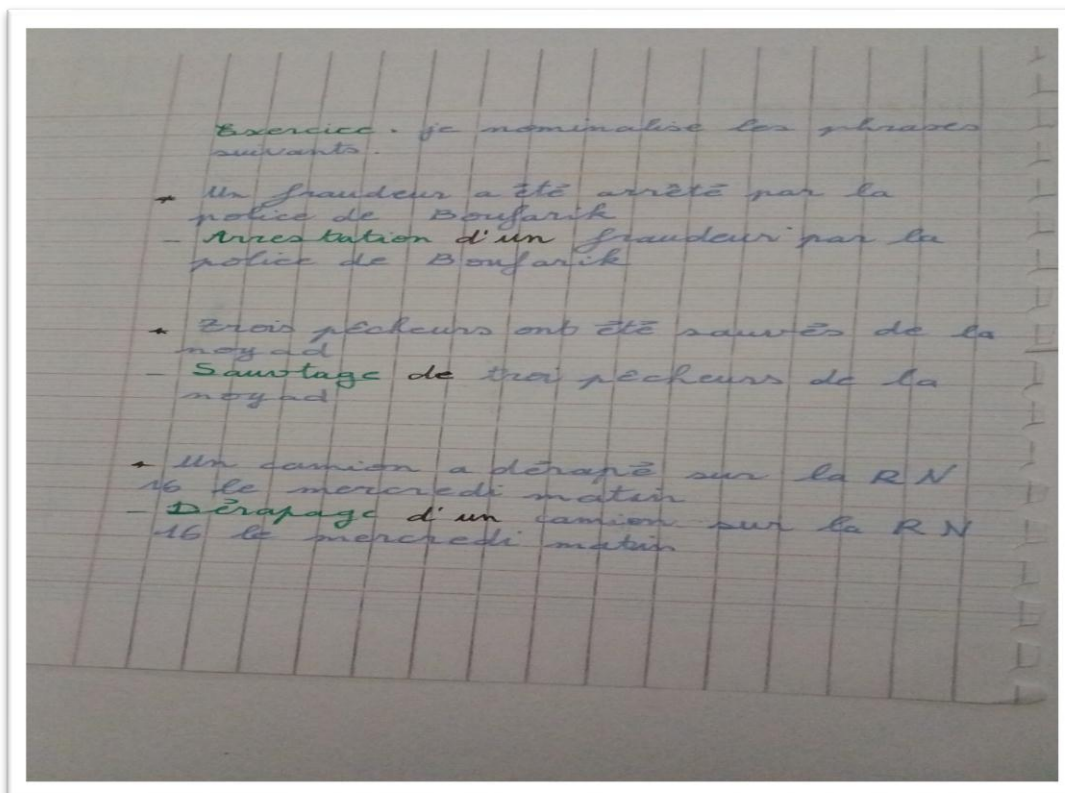 Exercice. je nominalise les phrases
suivants.
* Un fraudeur a été arrêté par la
police de Boufarik
- Arrestation d'un fraudeur par la
police de Boufarik
* Trois pêcheurs ont été sauvés de la
noyad
- Sauvtage de troi pêcheurs de la
noyad
* Un camion a dérapé sur la RN
16 le mercredi matin
- Dérapage d'un camion sur la RN
16 le mercredi matin